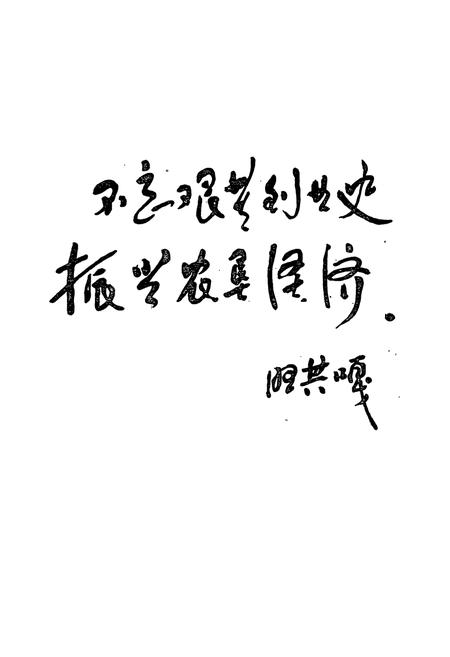 不忘艰苦创业史
振兴农垦经济。
共嘎